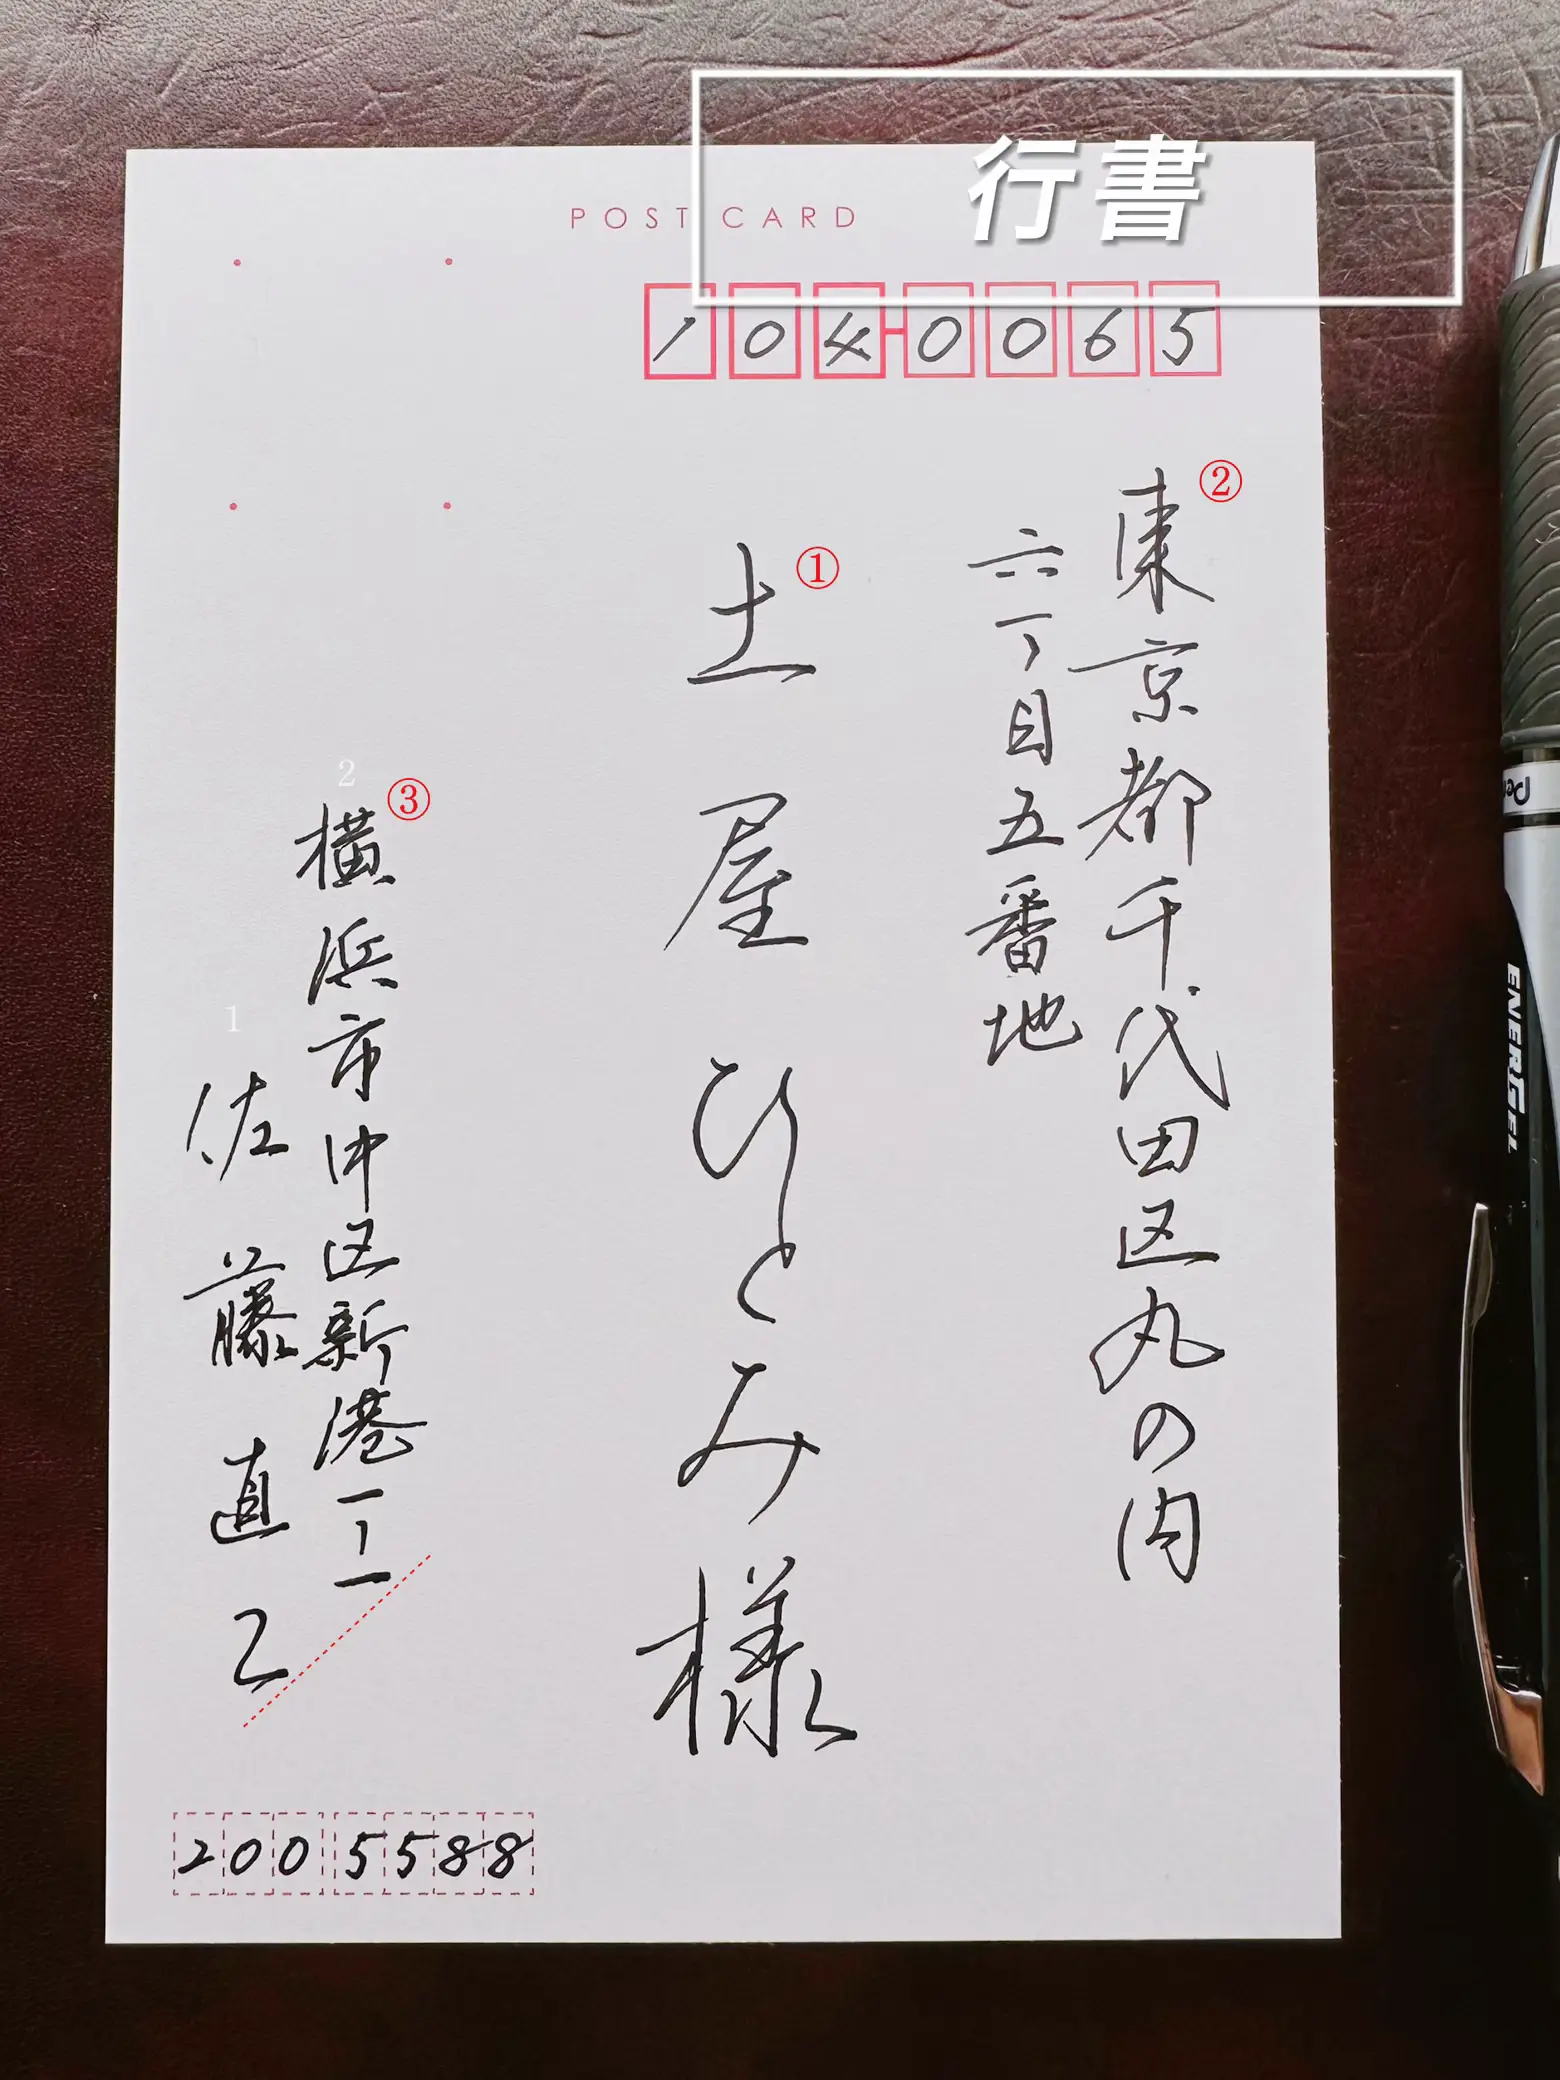 行書
POST CARD
104-0065
②
東京都千代田区丸の内
六丁目五番地
①
土屋ひとみ様
③
2
横浜市中区新港一ー一
1
佐藤直乙
2005588
Pen
ENERGEL